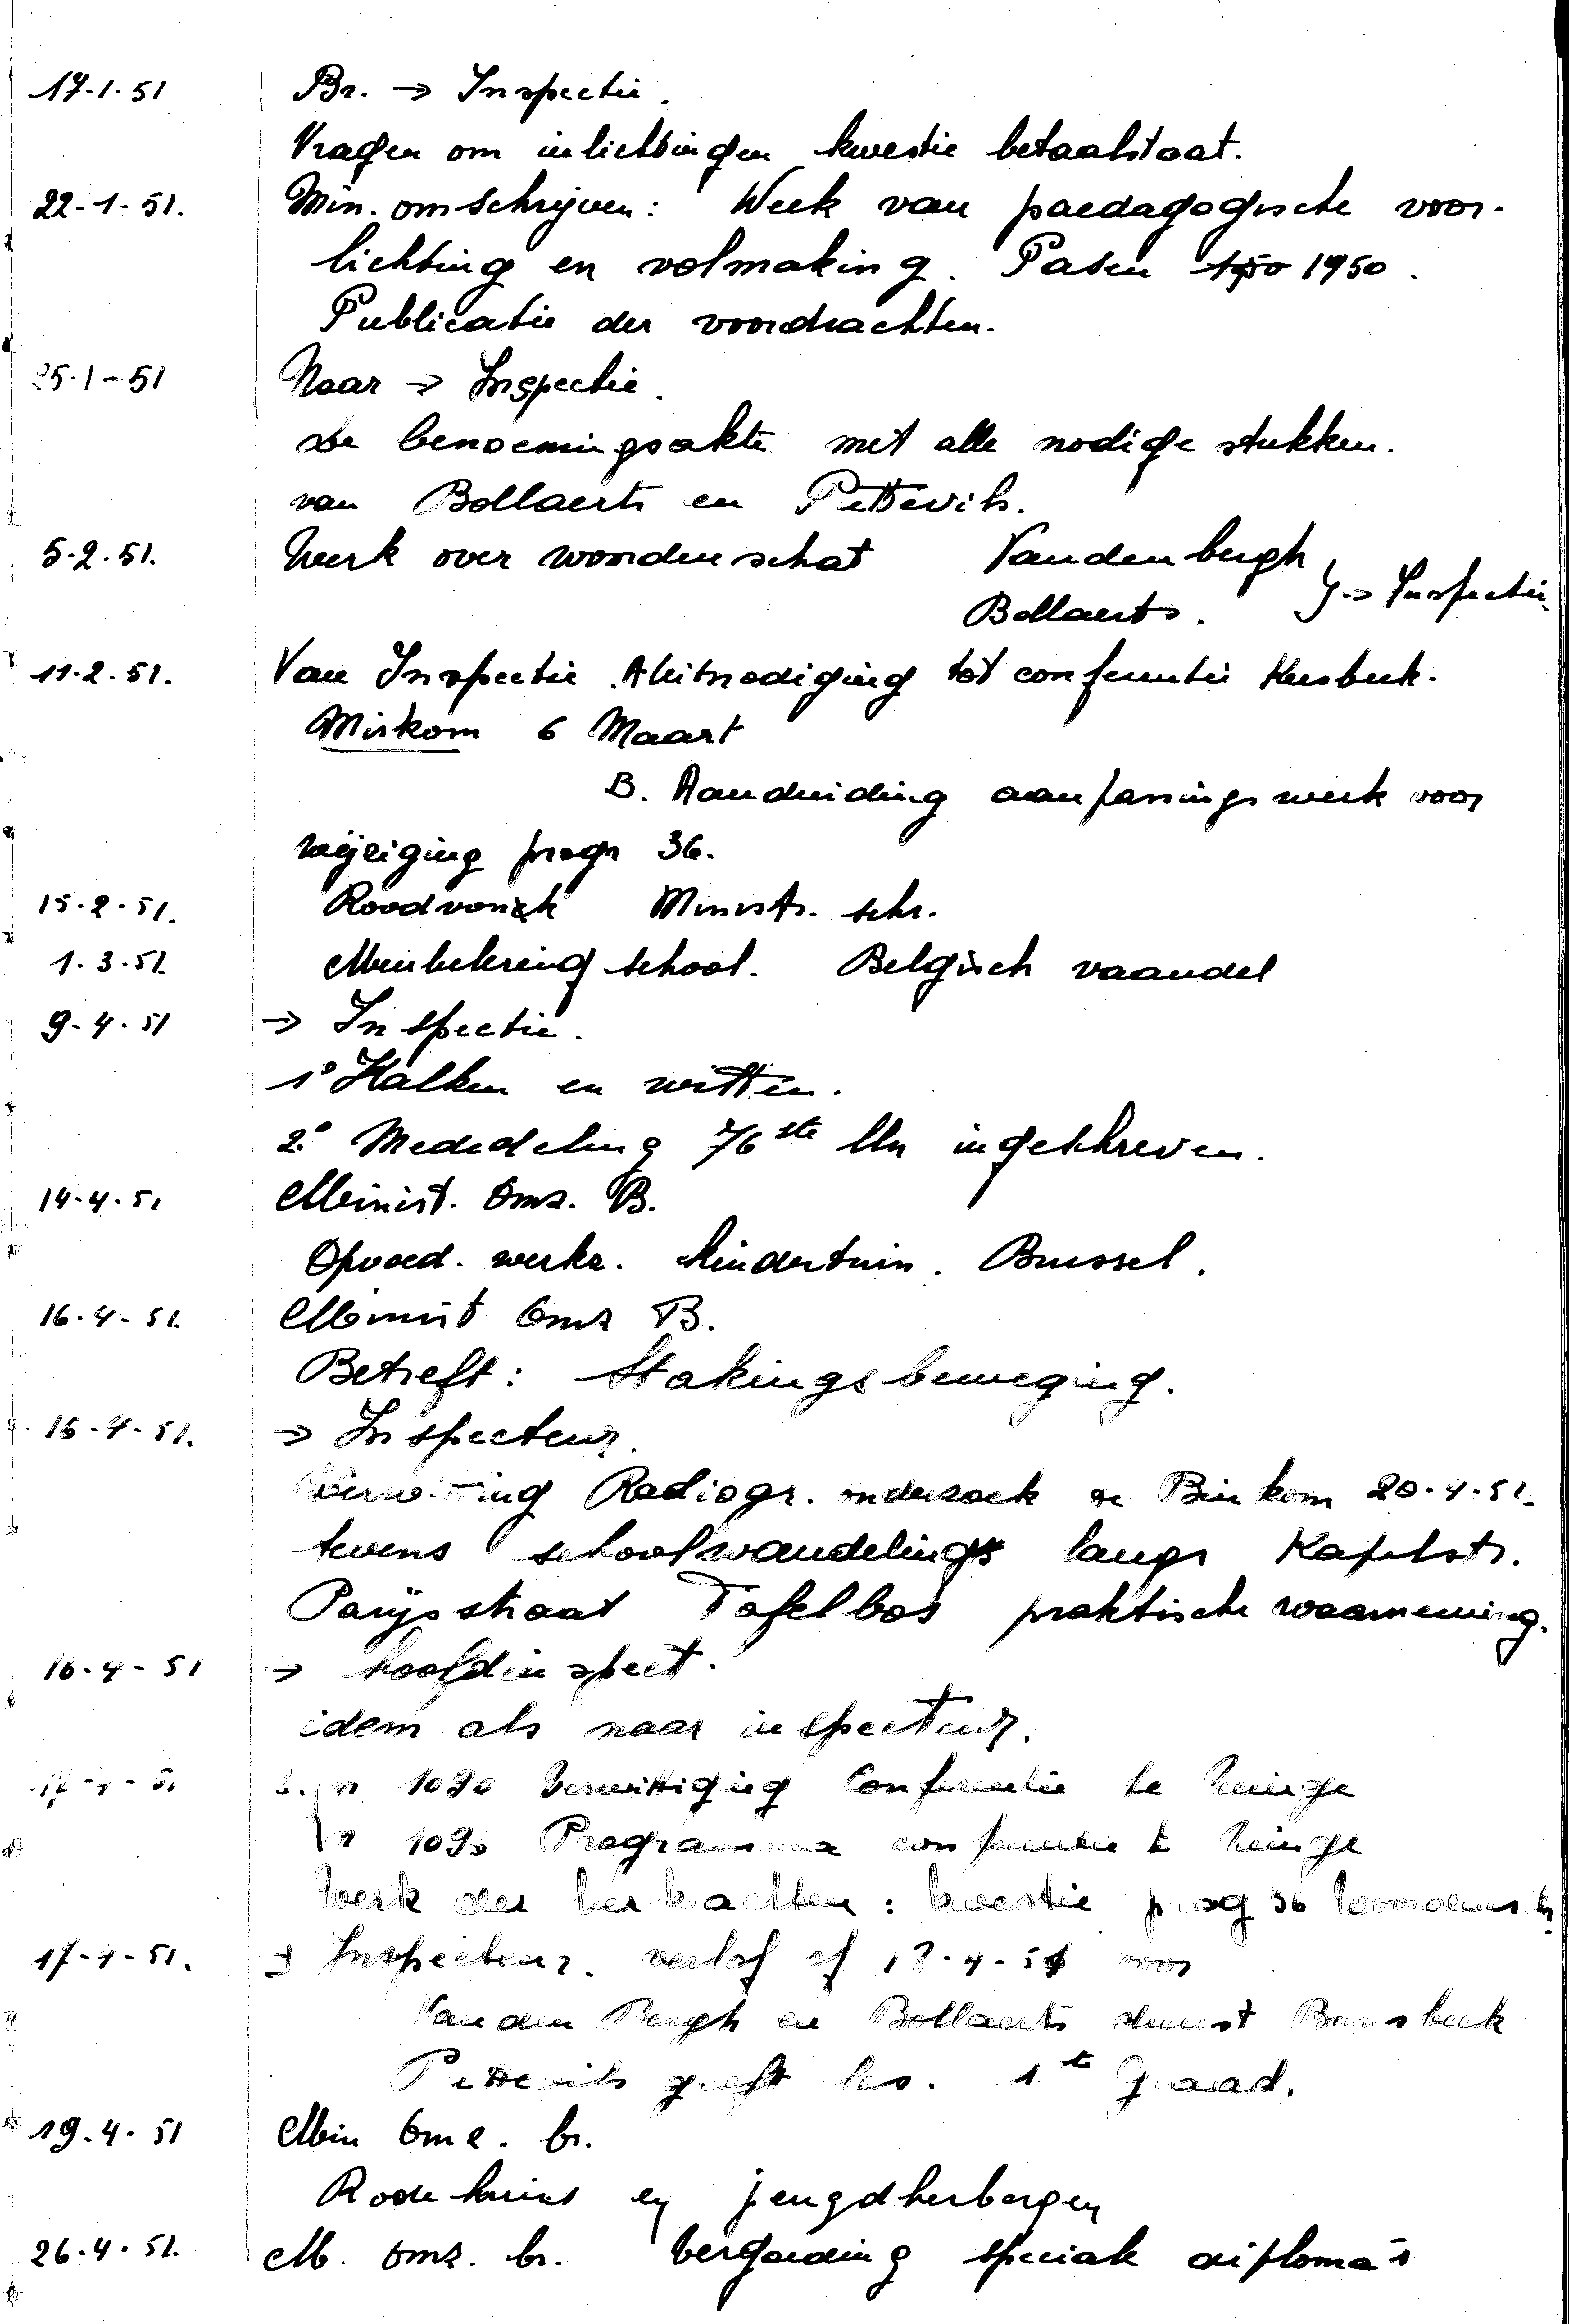 17-1-51 Br. → Inspectie.
Vragen om inlichtingen kwestie betaalstaat.
22-1-51. Min. omschrijven: Week van paedagogische voor-
lichting en volmaking. Pasen 1950.
Publicatie der voordrachten.
25-1-51 Naar → Inspectie.
De benoemingsakte met alle nodige stukken.
van Bollaerts en Pittevils.
5-2.51. Werk over woordenschat Vandenbergh
Bollaerts. } → Inspectie.
11.2.51. Van Inspectie. A Uitnodiging tot conferentie Kersbeek-
Miskom 6 Maart
B. Aanduiding aanpassingswerk voor
wijziging progr 36.
15-2-51. Roodvonk Ministr. schr.
1.3.51. Minbeheering school. Belgisch vaandel
9-4-51 → Inspectie.
1° Kalken en witten.
2° Mededeling 76ste lln ingeschreven.
14-4-51 Minist. Omz. B.
Opvoed. werkz. kindertuin. Brussel.
16-4-51. Minist Omz B.
Betreft: Stakingsbeweging.
16-4-51. → Inspecteur.
Radiogr. onderzoek Binkom 20-4-51.
tevens schoolwandeling langs Kapelstr.
Parijsstraat Tafelbos praktische waarneming.
16-4-51 → hoofdinspect.
idem als naar inspecteur.
Verwittiging Conferentie te
Programma conferentie te
Werk der leerkrachten: kwestie prog 36
17-4-51. → Inspecteur. verlof op 18-4-51 voor
Van den Bergh en Bollaerts dienst Bunsbeek
Pittevils geeft les. 1te Graad.
19-4-51 Min Omz. br.
Rode kruis en jeugdherbergen
26.4.51. M. Omz. br. Vergoeding speciale diploma's